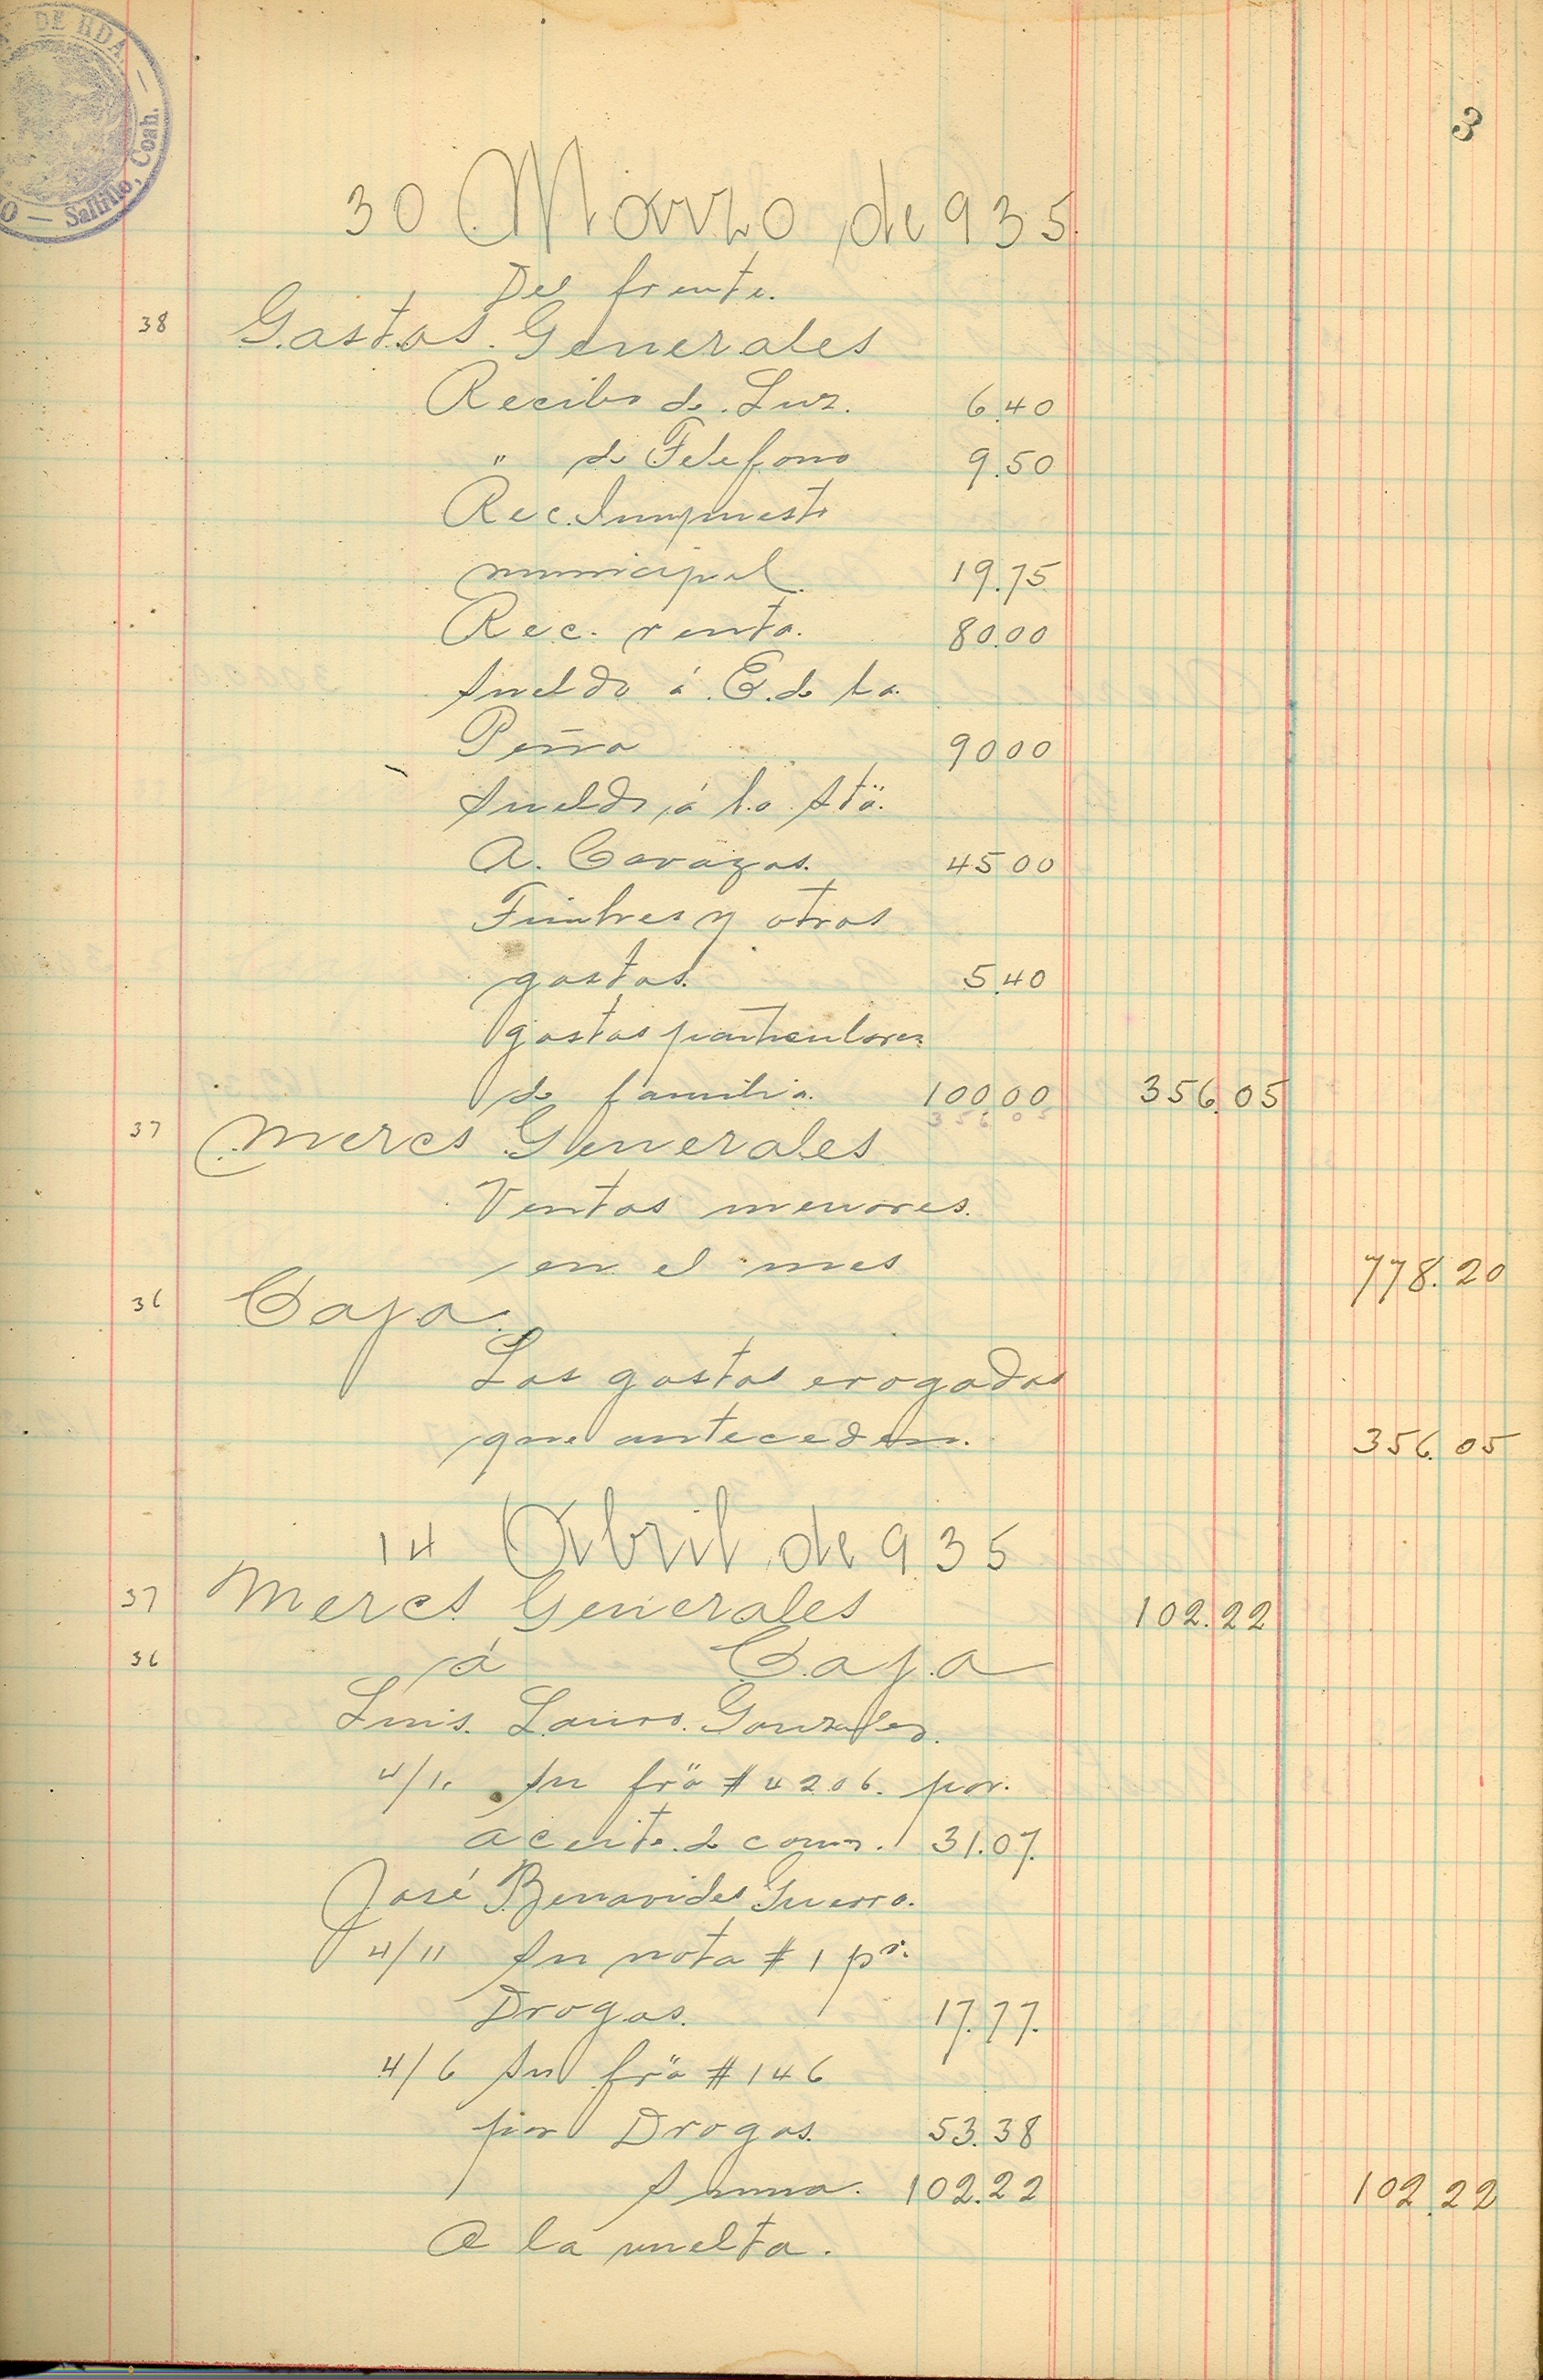 DE HDA.
O — Saltillo, Coah. —
3
30 Marzo de 935.
Del frente.
38 Gastos Generales
Recibo de Luz. 6.40
" de Telefono 9.50
Rec. Impuesto
municipal. 19.75
Rec. renta. 80.00
Sueldo á E. de la
Peña 90 00
Sueldo á la Stä.
A. Cavazos. 45 00
Timbres y otros
gastos. 5.40
gastos particulares
de familia. 100 00 356.05
356 05
37 Mercs Generales
Ventas menores.
en el mes 778.20
36 Caja.
Los gastos erogados
que anteceden. 356.05
14 Abril de 935
37 Mercs Generales 102.22
36 á Caja
Luis. Lauro. Gonzalez.
4/1. Su frä # 4206. por.
aceite. 31.07.
José Benavides Guerra.
4/11 Su nota # 1 pr.
Drogas. 17.77.
4/6 Su frä # 146
por Drogas. 53.38
Suma. 102.22 102.22
A la vuelta.